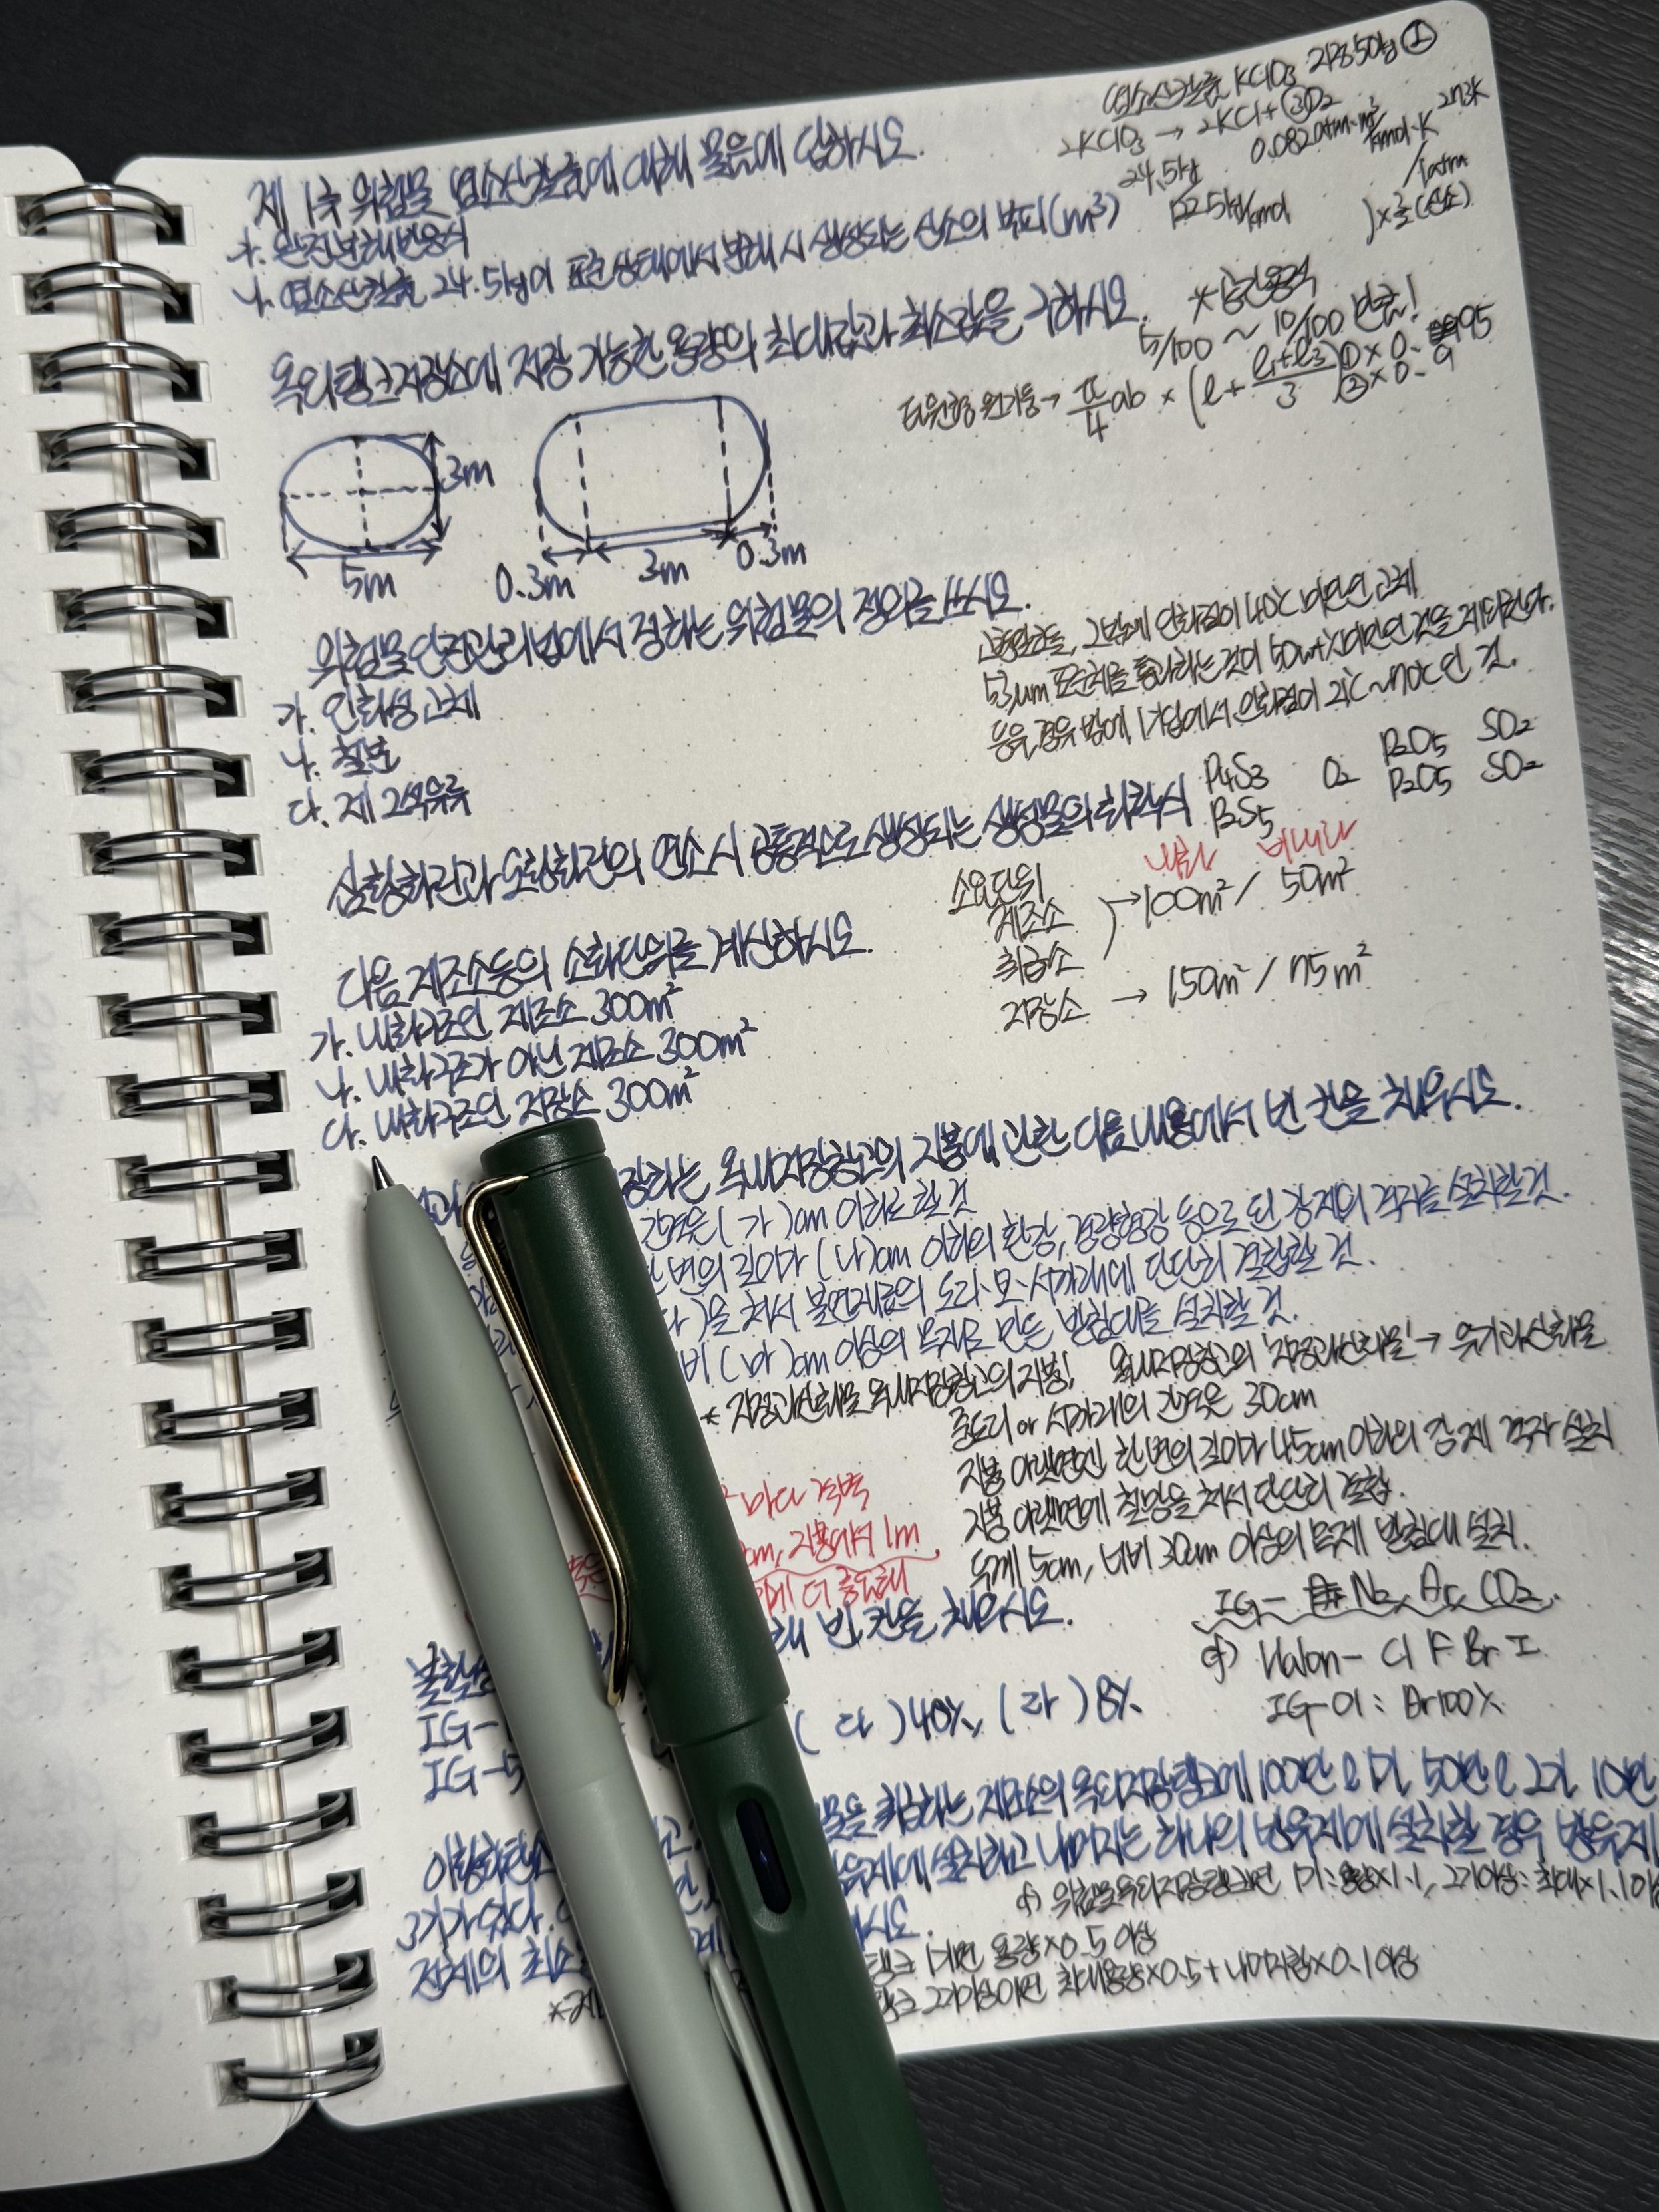 염소산칼륨 KClO3 지정50kg ①
2KClO3 → 2KCl + ③O2
0.082atm·m³/kmol·K 273K
24.5kg
122.5kg/kmol /1atm
) × 3/2 (산소)
제 1류 위험물 염소산칼륨에 대해 물음에 답하시오.
가. 완전분해반응식
나. 염소산칼륨 24.5kg이 표준상태에서 분해 시 생성되는 산소의 부피(m³)
옥외탱크저장소에 저장 가능한 용량의 최대값과 최소값을 구하시오.
*공간용적
5/100 ~ 10/100 반출!
타원형 원기둥→ π/4 ab × (l + l1+l2/3) ① × 0.95
② × 0.9
3m
5m
0.3m 3m 0.3m
위험물안전관리법에서 정하는 위험물의 정의를 쓰시오.
가. 인화성고체
나. 철분
다. 제 2석유류
고형알코올, 그밖에 인화점이 40℃ 미만인 고체
53μm 표준체를 통과하는 것이 50wt% 미만인 것을 제외한다.
등유, 경유 밖에, 1기압에서 인화점이 21℃~70℃인 것.
삼황화린과 오황화린의 연소 시 공통적으로 생성되는 생성물의 화학식
P4S3 O2 P2O5 SO2
P2S5 P2O5 SO2
다음 제조소등의 소화단위를 계산하시오.
가. 내화구조인 제조소 300m²
나. 내화구조가 아닌 제조소 300m²
다. 내화구조인 저장소 300m²
내화 비내화
소요단위
제조소
취급소 → 100m² / 50m²
저장소 → 150m² / 75m²
장하는 옥내저장창고의 지붕에 관한 다음 내용에서 빈 칸을 채우시오.
간격은 ( 가 )cm 이하로 할 것
한 변의 길이가 ( 나 )cm 이하의 환강, 경량형강 등으로 된 강제의 격자를 설치할 것.
)을 쳐서 불연재료의 도리·보·서까래에 단단히 결합할 것.
너비 ( 마 )cm 이상의 목재로 만든 받침대를 설치할 것.
* 지정과산화물 옥내저장창고의 지붕! 옥내저장창고의 '지정과산화물' → 유기과산화물
중도리 or 서까래의 간격은 30cm
지붕 아랫면엔 한 변의 길이가 45cm 이하의 강제 격자 설치
지붕 아랫면에 철망을 쳐서 단단히 결합.
두께 5cm, 너비 30cm 이상의 목재 받침대 설치.
마다 격벽
cm, 지붕에서 1m
빈 칸을 채우시오.
IG- N2, Ar, CO2
cf) Halon- Cl F Br I
IG-01 : Ar100%
IG-
IG-5
( 다 )40%, ( 라 )8%
취급하는 제조소의 옥외저장탱크에 100만ℓ 1기, 50만ℓ 2기, 10만
3기가 있다.
유제에 설치하고 나머지는 하나의 방유제에 설치할 경우 방유제
전체의 최소
하시오.
cf) 위험물옥외저장탱크면 1기 : 용량×1.1, 2기이상 : 최대×1.1이상
탱크 1기면 용량×0.5 이상
탱크 2기이상이면 최대용량×0.5 + 나머지합×0.1 이상